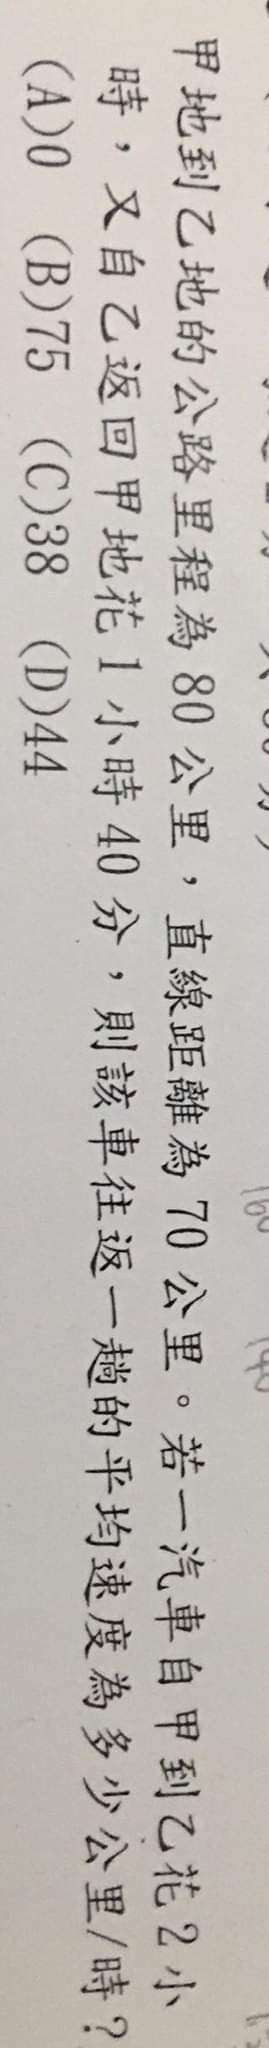 甲地到乙地的公路里程為 80 公里，直線距離為 70 公里。若一汽車自甲到乙花 2 小
時，又自乙返回甲地花 1 小時 40 分，則該車往返一趟的平均速度為多少公里/時？
(A)0 (B)75 (C)38 (D)44
160
140